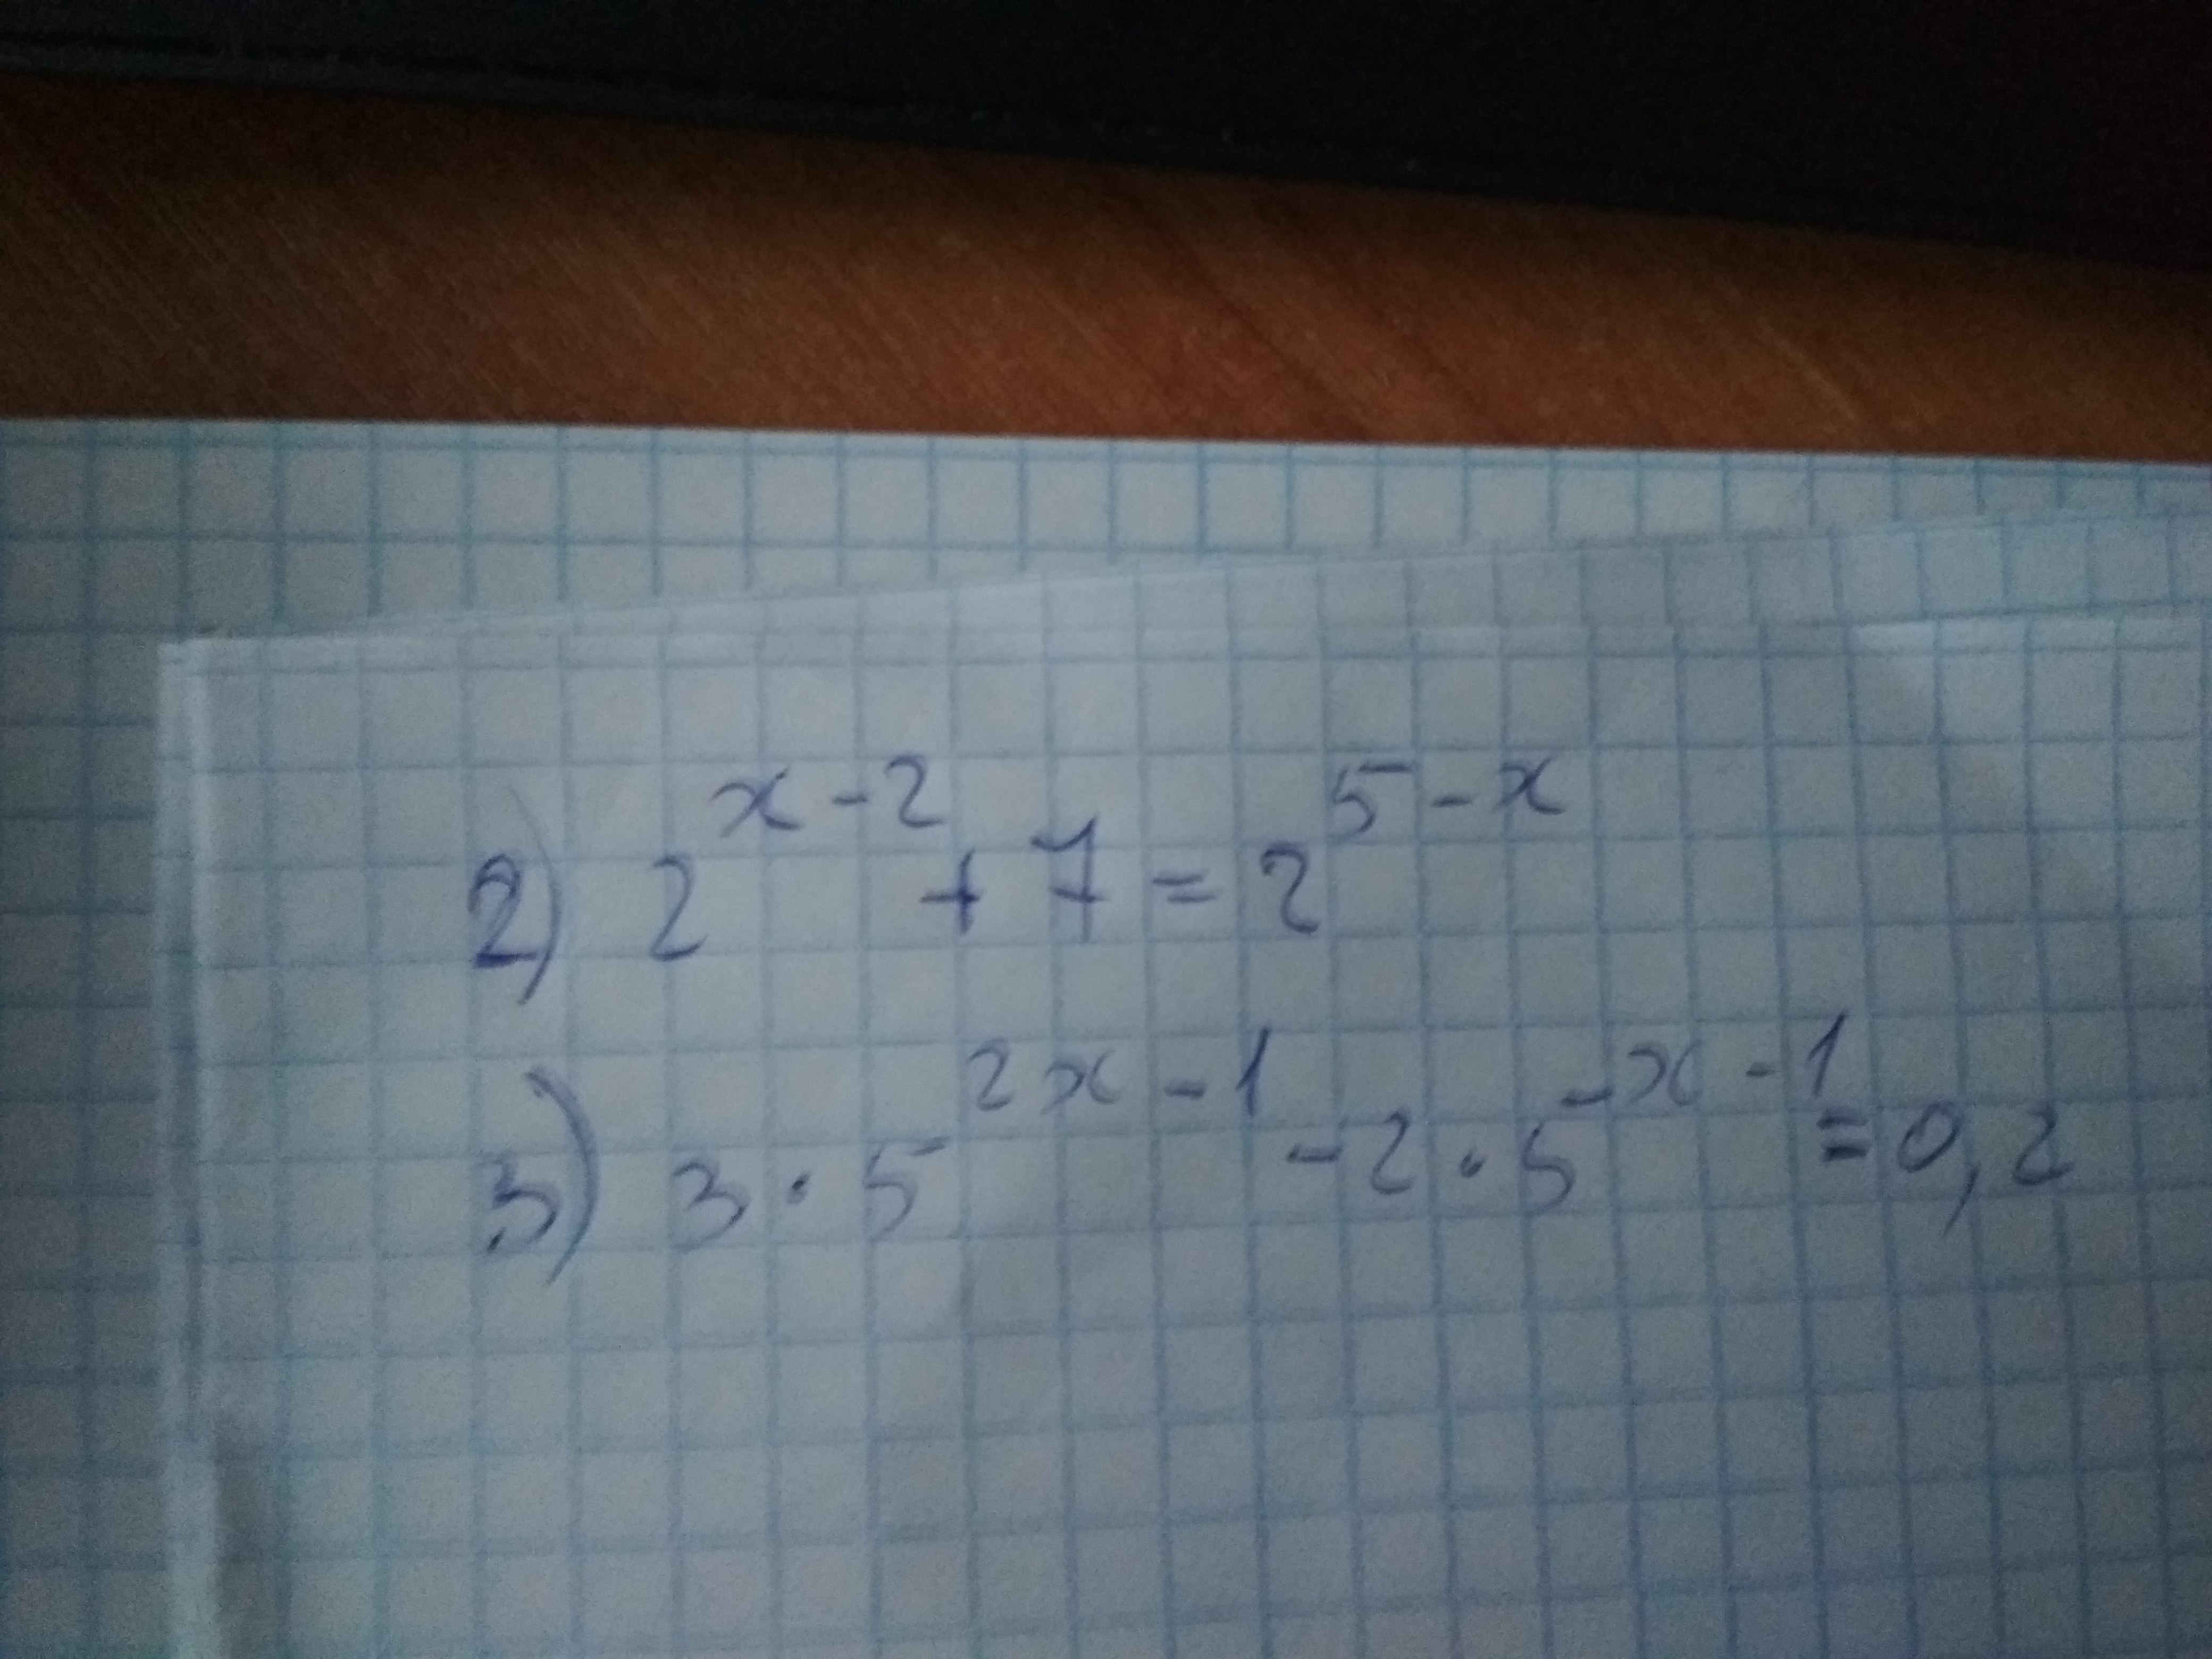 2) 2^{x-2} + 7 = 2^{5-x}
3) 3 · 5^{2x-1} - 2 · 5^{-x-1} = 0,2